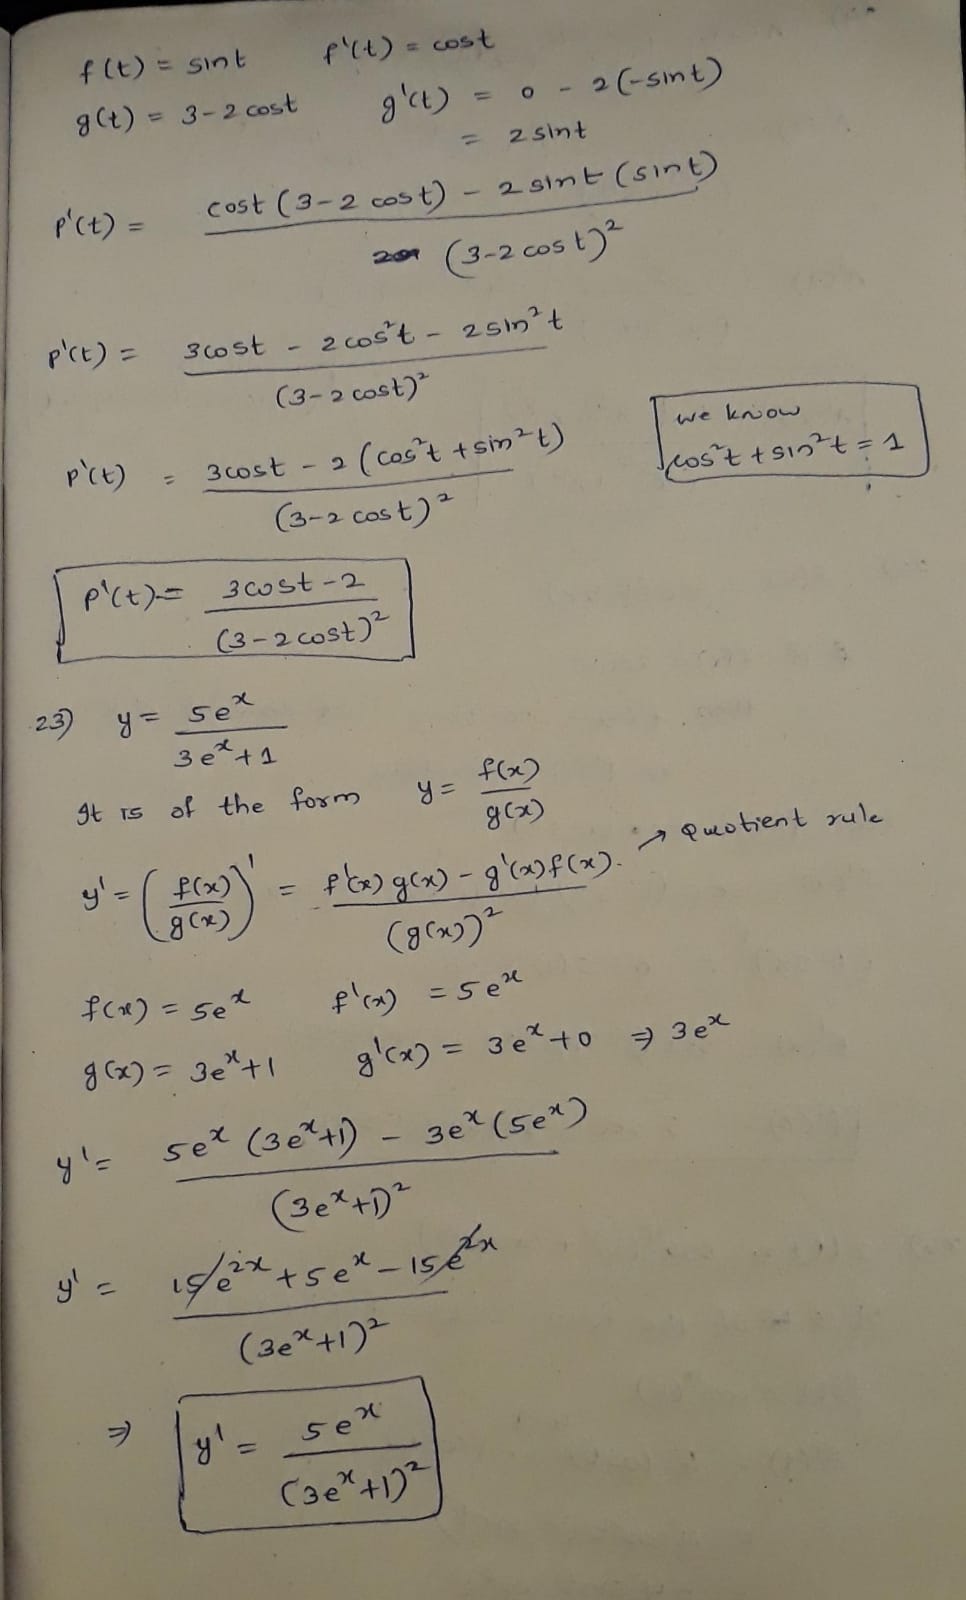 f(t) = sint f'(t) = cost
g(t) = 3-2 cost g'(t) = 0 - 2(-sint)
= 2 sint
p'(t) = cost (3-2 cost) - 2 sint (sint)
(3-2 cos t)²
p'(t) = 3cost - 2 cos²t - 2 sin²t
(3-2 cost)²
we know
cos²t + sin²t = 1
p'(t) = 3cost - 2 (cos²t + sin²t)
(3-2 cost)²
p'(t) = 3cost - 2
(3-2 cost)²
23) y = 5eˣ
3eˣ+1
It is of the form y = f(x)
g(x)
→ Quotient rule
y' = (f(x)/g(x))' = f'(x) g(x) - g'(x) f(x).
(g(x))²
f(x) = 5eˣ f'(x) = 5eˣ
g(x) = 3eˣ+1 g'(x) = 3eˣ+0 ⇒ 3eˣ
y' = 5eˣ (3eˣ+1) - 3eˣ (5eˣ)
(3eˣ+1)²
y' = 15e²ˣ + 5eˣ - 15e²ˣ
(3eˣ+1)²
⇒ y' = 5eˣ
(3eˣ+1)²